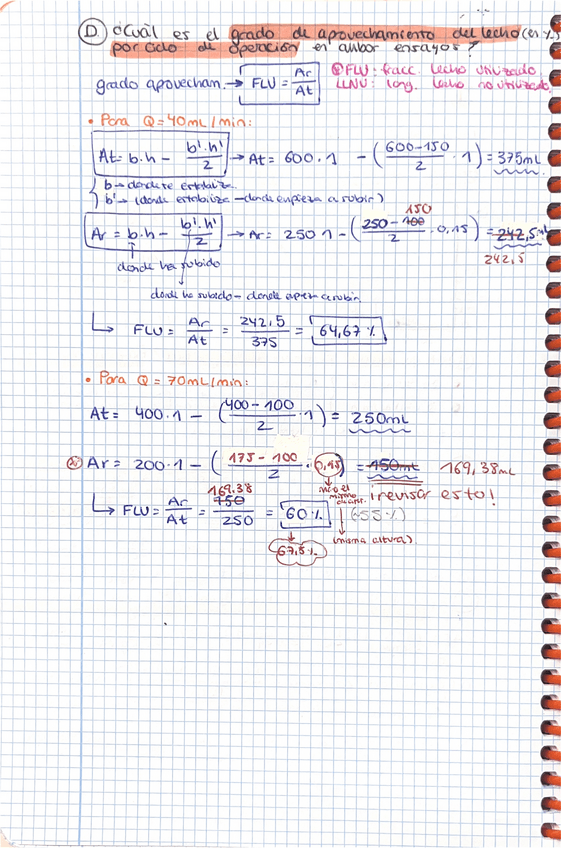 D. ¿Cuál es el grado de aprovechamiento del lecho (en %)
por ciclo de operación en ambos ensayos?
grado aprovecham. → FLU = Ar / At
FLU: fracc. lecho utilizado.
LLNU: long. lecho no utilizado.
• Para Q = 40mL/min:
At = b·h - b'·h' / 2 → At = 600·1 - (600-150 / 2 · 1) = 375mL
b → donde se estabiliza
b' → (donde estabiliza - donde empieza a subir)
150
Ar = b·h - b'·h' / 2 → Ar = 250·1 - (250-100 / 2 · 0,15) = 242,5mL
242,5
donde ha subido
donde ha subido - donde empieza a subir
↳ FLU = Ar / At = 242,5 / 375 = 64,67%
• Para Q = 70mL/min:
At = 400·1 - (400-100 / 2 · 1) = 250mL
Ar = 200·1 - (175-100 / 2 · 0,15) = 150mL 169,38mL
no es el mismo
¡revisar esto!
169,38
↳ FLU = Ar / At = 150 / 250 = 60% (55%)
(misma altura)
67,5%